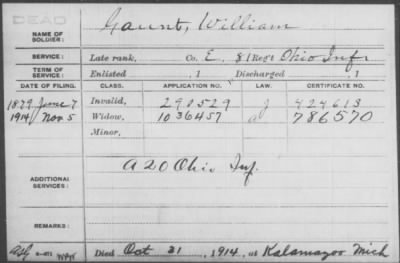 DEAD
NAME OF SOLDIER: Gaunt, William
SERVICE: Late rank, Co. E, 81 Reg't Ohio Inf.
TERM OF SERVICE: Enlisted , 1 Discharged , 1
DATE OF FILING. CLASS. APPLICATION NO. LAW. CERTIFICATE NO.
1879 June 7 Invalid, 290529 J 424613
1914 Nov. 5 Widow, 1036457 786570
Minor,
ADDITIONAL SERVICES: A 20 Ohio Inf.
REMARKS:
Died Oct 31, 1914, at Kalamazoo Mich